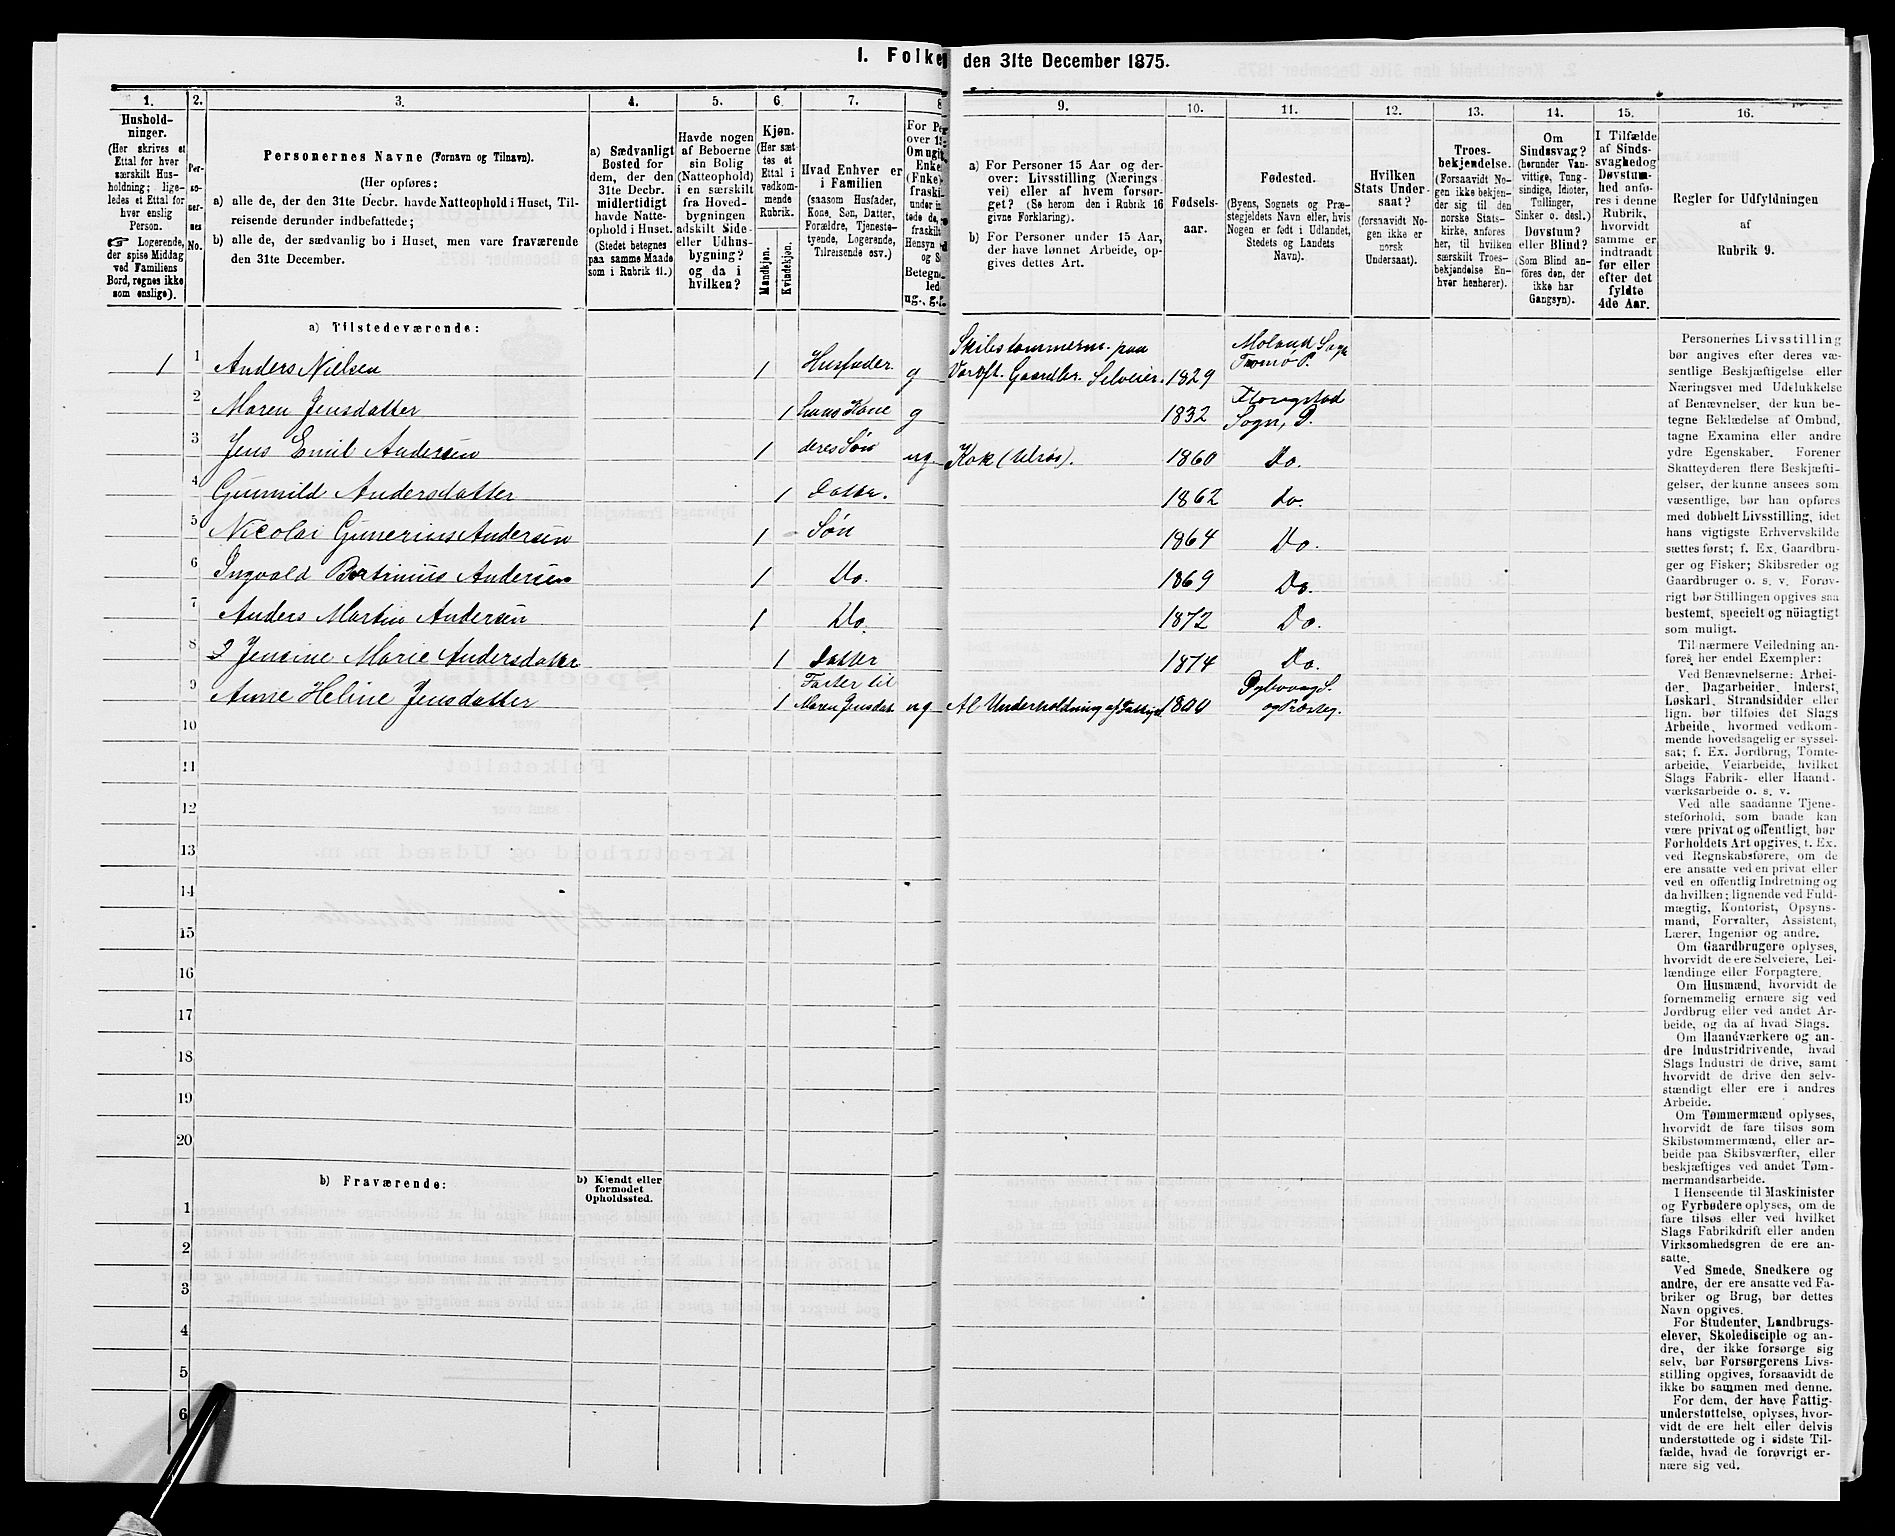 I. Folke den 31te December 1875.
1. 2. 3. 4. 5. 6. 7. 8
Hushold-
ninger.
(Her skrives et
Ettal for hver
særskilt Hus-
holdning; lige-
ledes et Ettal for
hver enslig
Person.
☞ Logerende,
der spise Middag
ved Familiens
Bord, regnes ikke
som enslige).
Per-
so-
ner-
nes
No.
Personernes Navne (Fornavn og Tilnavn).
(Her opføres:
a) alle de, der den 31te Decbr. havde Natteophold i Huset, Til-
reisende derunder indbefattede;
b) alle de, der sædvanlig bo i Huset, men vare fraværende
den 31te December.
a) Sædvanligt
Bosted for
dem, der den
31te Decbr.
midlertidigt
havde Natte-
ophold i Huset.
(Stedet betegnes
paa samme Maade
som i Rubrik 11.)
Havde nogen
af Beboerne
sin Bolig
(Natteophold)
i en særskilt
fra Hoved-
bygningen
adskilt Side-
eller Udhus-
bygning?
og da i
hvilken?
Kjøn.
(Her sæt-
tes et
Ettal i
vedkom-
mende
Rubrik.
Mandkjøn.
Kvindekjøn.
Hvad Enhver er
i Familien
(saasom Husfader,
Kone, Søn, Datter,
Forældre, Tjeneste-
tyende, Logerende,
Tilreisende osv.)
For Pe
over 15
Om ugit
Enke
(Enke)
fraski
under in
tede de,
fraskilt
Hensyn
og S
Betegn
led
ug., g.,
9. 10. 11. 12. 13. 14. 15. 16.
a) For Personer 15 Aar og der-
over: Livsstilling (Nærings
vei) eller af hvem forsør-
get? (Se herom den i Rubrik 16
givne Forklaring).
b) For Personer under 15 Aar,
der have lønnet Arbeide, op-
gives dettes Art.
Fødsels-
aar.
Fødested.
(Byens, Sognets og Præ-
stegjeldets Navn eller, hvis
Nogen er født i Udlandet,
Stedets og Landets
Navn).
Hvilken
Stats Under-
saat?
(forsaavidt No-
gen ikke er
norsk
Undersaat).
Troes-
bekjendelse.
(Forsaavidt No-
gen ikke bekjen-
der sig til den
norske Stats-
kirke, anføres
her, til hvilken
særskilt Troes-
bekjendelse En-
hver henhører).
Om
Sindssvag?
(herunder Van-
vittige, Tung-
sindige, Idioter,
Tullinger,
Sinker o. desl.)
Døvstum?
eller Blind?
(Som Blind an-
føres den, der
ikke har
Gangsyn).
I Tilfælde
af Sinds-
svaghedog
Døvstum-
hed anfø-
res i denne
Rubrik,
hvorvidt
samme er
indtraadt
før eller
efter det
fyldte
4de Aar.
Regler for Udfyldningen
af
Rubrik 9.
a) Tilstedeværende:
1 1 Anders Nielsen 1 Husfader g Skibstømmerm. paa Værft. Gaardbr. Selveier. 1829 Moland Sogn Tromø P.
2 Maren Jensdatter 1 hans Kone g 1832 Flougstad Sogn, P.
3 Jens Emil Andersen 1 deres Søn ug Kok (tilsøs). 1860 Do.
4 Gunnild Andersdatter 1 Datter. 1862 Do.
5 Nicolai Gunerius Andersen 1 Søn 1864 Do.
6 Ingvald Bertinius Andersen 1 Do. 1869 Do.
7 Anders Martin Andersen 1 Do. 1872 Do.
8 Jensine Marie Andersdatter 1 Datter 1874 Do.
9 Anne Heline Jensdatter 1 Faster til Maren Jensdat. ug Al Underholdning af Fattigv. 1800 Dybvaag S. og Præsteg.
10
11
12
13
14
15
16
17
18
19
20
b) Fraværende:
b) Kjendt eller
formodet
Opholdssted.
1
2
3
4
5
6
Personernes Livsstilling
bør angives efter deres væ-
sentlige Beskjæftigelse eller
Næringsvei med Udelukkelse
af Benævnelser, der kun be-
tegne Beklædelse af Ombud,
tagne Examina eller andre
ydre Egenskaber. Forener
Skatteyderen flere Beskjæfti-
gelser, der kunne ansees som
væsentlige, bør han opføres
med dobbelt Livsstilling, idet
hans vigtigste Erhvervskilde
sættes først; f. Ex. Gaardbru-
ger og Fisker; Skibsreder og
Gaardbruger o. s. v. Forøv-
rigt bør Stillingen opgives saa
bestemt, specielt og nöiagtigt
som muligt.
Til nærmere Veiledning an-
føres her endel Exempler:
Ved Benævnelserne: Arbei-
der, Dagarbeider, Inderst,
Løskarl, Strandsidder eller
lign. bør tilføies det Slags
Arbeide, hvormed vedkom-
mende hovedsagelig er syssel-
sat; f. Ex. Jordbrug, Tomte-
arbeide, Veiarbeide, hvilket
Slags Fabrik- eller Haand-
værksarbeide o. s. v.
Ved alle saadanne Tjene-
steforhold, som baade kan
være privat og offentligt, bør
Forholdets Art opgives, f. Ex.
ved Regnskabsførere, om de
ere ansatte ved en privat eller
ved en offentlig Indretning og
da hvilken; lignende ved Fuld-
mægtig, Kontorist, Opsyns-
mand, Forvalter, Assistent,
Lærer, Ingeniør og andre.
Om Gaardbrugere oplyses,
hvorvidt de ere Selveiere, Lei-
lændinge eller Forpagtere.
Om Husmænd, hvorvidt de
fornemmelig ernære sig ved
Jordbrug eller ved andet Ar-
beide, og da af hvad Slags.
Om Haandværkere og an-
dre Industridrivende, hvad
Slags Industri de drive, samt
hvorvidt de drive den selv-
stændigt eller ere i andres
Arbeide.
Om Tømmermænd oplyses,
hvorvidt de fare tilsøs som
Skibstømmermænd, eller ar-
beide paa Skibsværfter, eller
beskjæftiges ved andet Tøm-
mermandsarbeide.
I Henseende til Maskinister
og Fyrbødere oplyses, om de
fare tilsøs eller ved hvilket
Slags Fabrikdrift eller anden
Virksomhedsgren de ere an-
satte.
Ved Smede, Snedkere og
andre, der ere ansatte ved Fa-
briker og Brug, bør dettes
Navn opgives.
For Studenter, Landbrugs-
elever, Skoledisciple og an-
dre, der ikke forsørge sig
selv, bør Forsørgerens Livs-
stilling opgives, forsaavidt de
ikke bo sammen med denne.
For dem, der have Fattig-
understøttelse, oplyses, hvor-
vidt de ere helt eller delvis
understøttede og i sidste Til-
fælde, hvad de forøvrigt er-
nære sig ved.